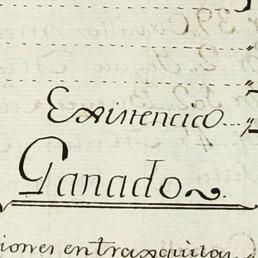 Existencia
Ganado
iones entrasquilar